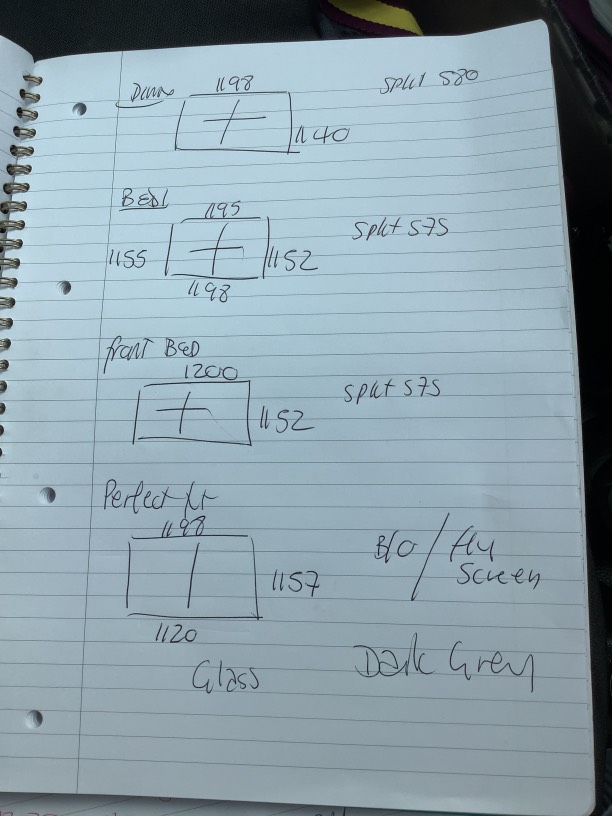 1198 split 580
1140
BED1
1195 split 575
1155 1152
1198
front BED
1200 split 575
1152
Perfect fit
1198 B/O / fly
screen
1157
1120
Glass Dark Grey